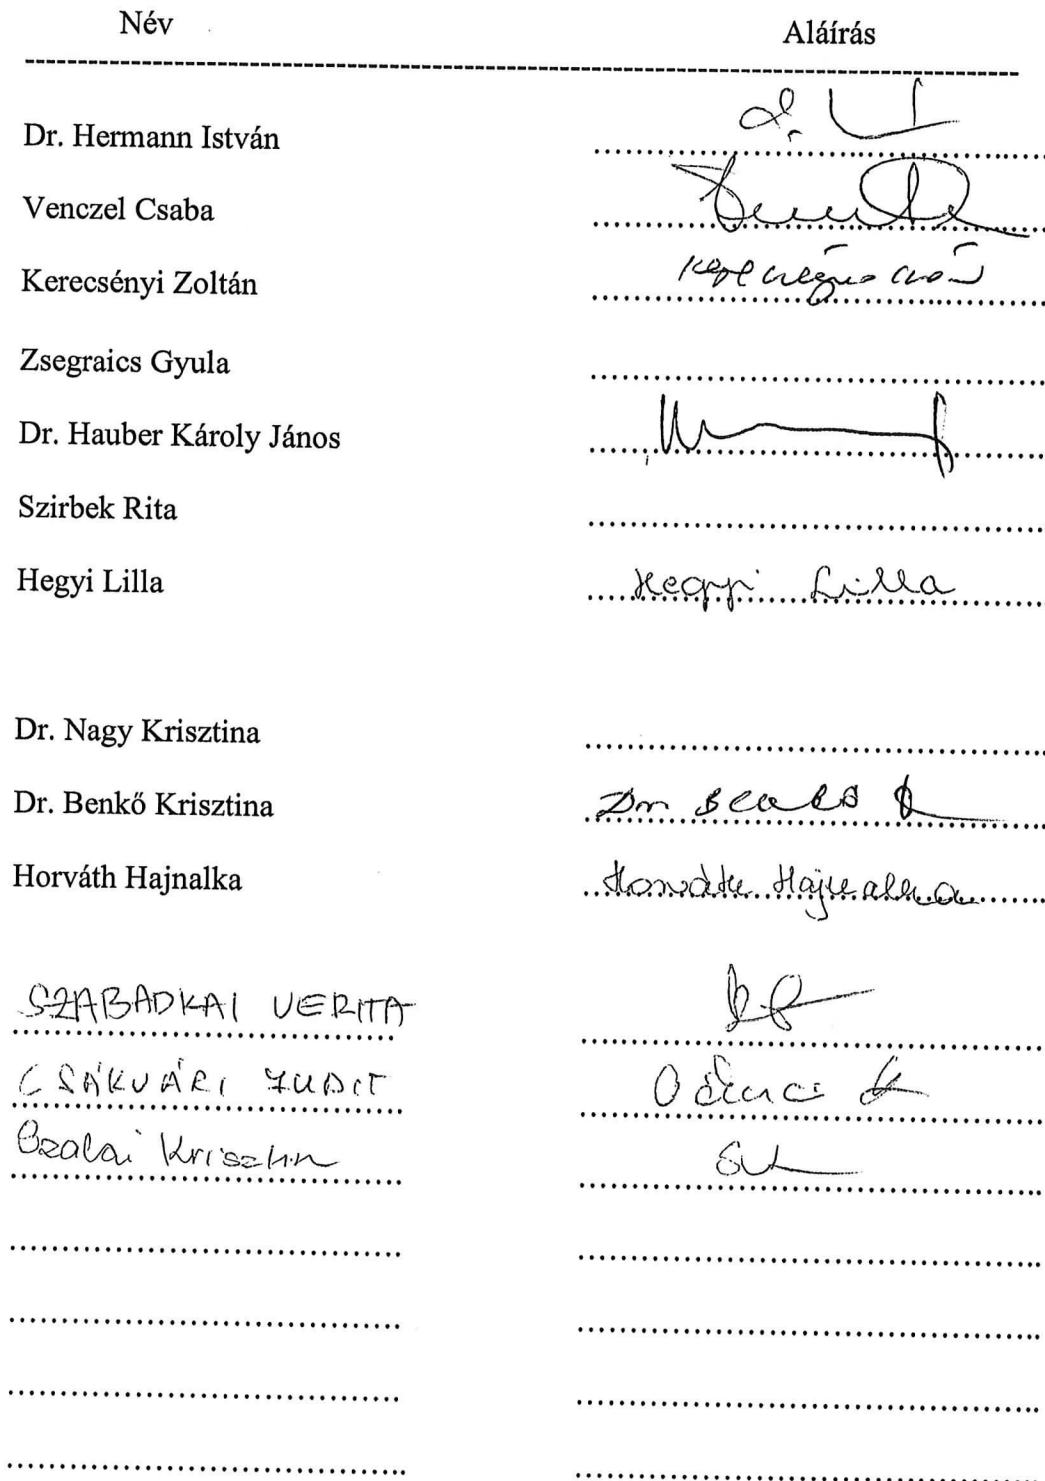 Név Aláírás
Dr. Hermann István
Venczel Csaba
Kerecsényi Zoltán
Zsegraics Gyula
Dr. Hauber Károly János
Szirbek Rita
Hegyi Lilla Hegyi Lilla
Dr. Nagy Krisztina
Dr. Benkő Krisztina Dr Benkő
Horváth Hajnalka Horváth Hajnalka
SZABADKAI VERITA
CSÁKVÁRI JUDIT
Szalai Krisztin